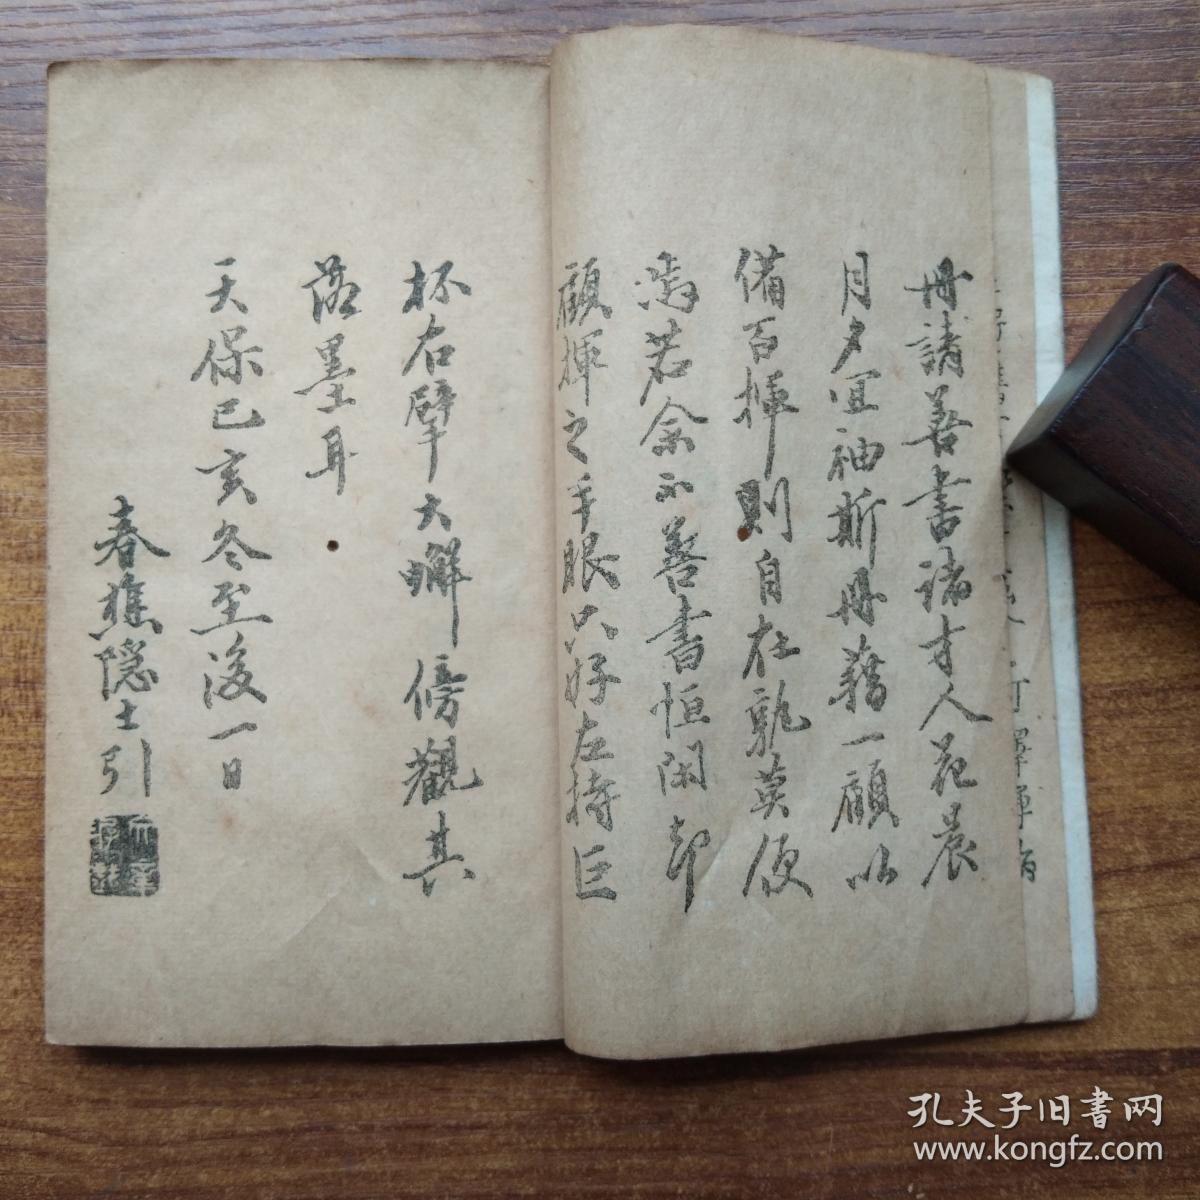 冊請善書諸才人花晨
月夕宜袖斯冊藉一顧以
備百揮則自在孰莫便
焉若余不善書恒閑却
顧揮之手眼只好左持巨
杯右擘大蠏傍觀其
落墨耳
天保己亥冬至後一日
春樵隠士引
孔夫子旧書网
www.kongfz.com